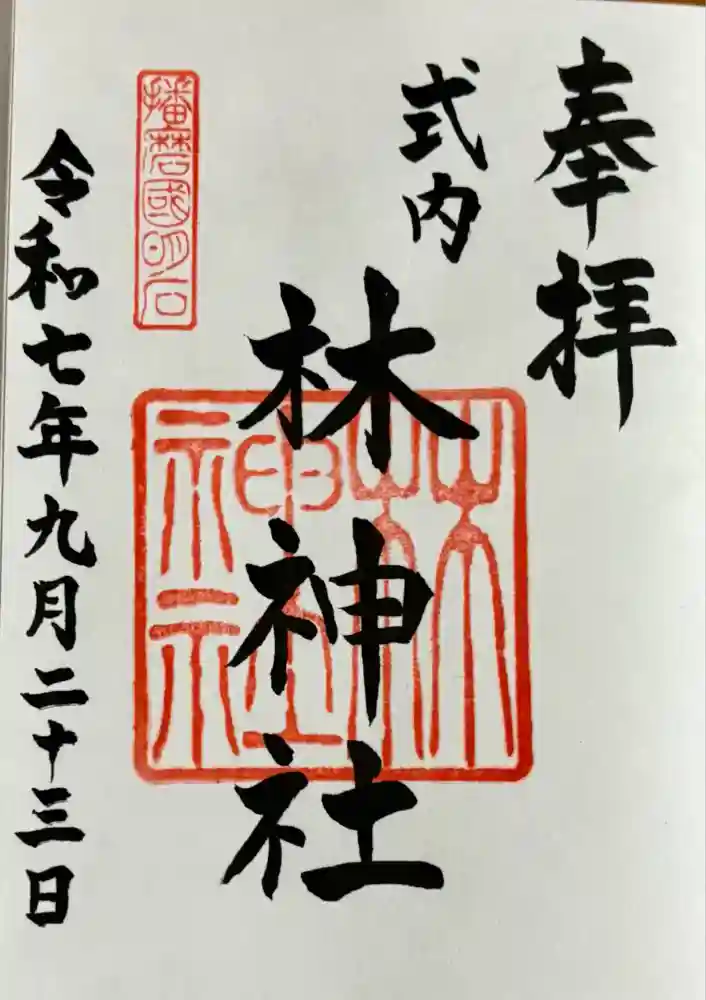 奉拝
式内
林神社
林神社
播磨國明石
令和七年九月二十三日